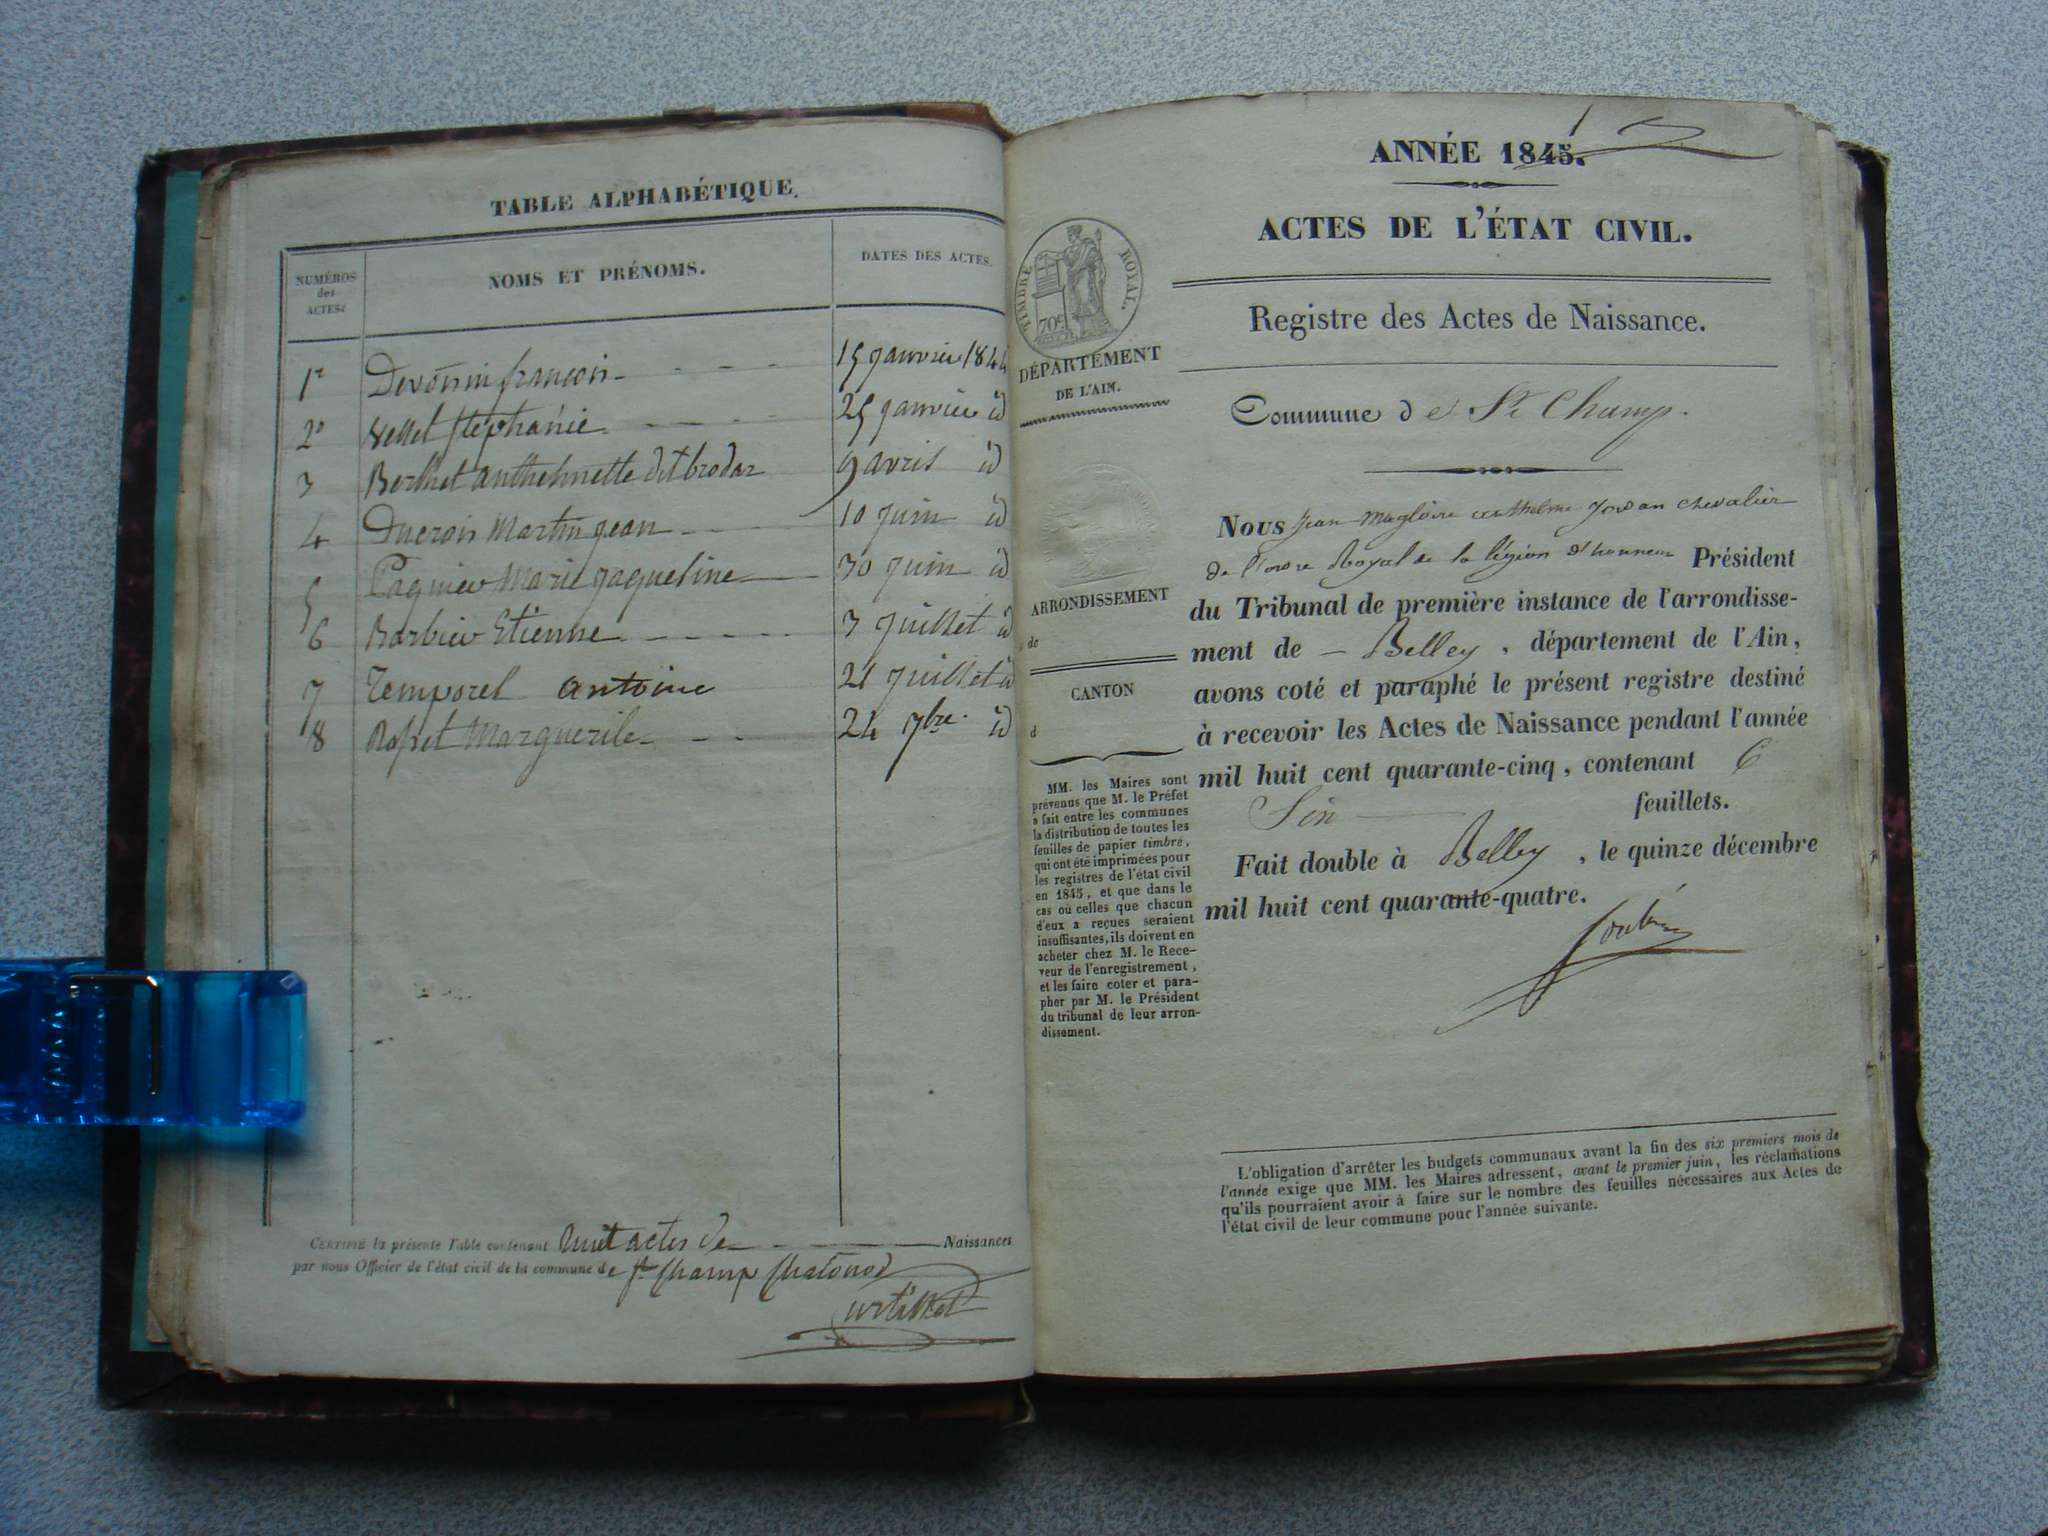 TABLE ALPHABÉTIQUE.
NUMÉROS
des
ACTES
NOMS ET PRÉNOMS.
DATES DES ACTES.
1r françois 15 janvier 1844
2o Stéphanie 25 janvier id
3 Berthet anthelmette dit brodar 9 avril id
4 Ducroir Martin jean 10 juin id
5 Marie jaqueline 30 juin id
6 Barbier Etienne 3 juillet id
7 Temporel antoine 21 juillet id
8 Marguerite 24 7bre. id
CERTIFIÉ la présente Table contenant huit actes de Naissances
par nous Officier de l'état civil de la commune de St Champ Chatonod
1
ANNÉE 1845.
ACTES DE L'ÉTAT CIVIL.
TIMBRE ROYAL.
70c
DÉPARTEMENT
DE L'AIN.
Registre des Actes de Naissance.
Commune de St Champ.
Nous jean Magloire anthelme jordan chevalier
de l'ordre Royal de la légion d'honneur Président
du Tribunal de première instance de l'arrondisse-
ment de Belley, département de l'Ain,
avons coté et paraphé le présent registre destiné
à recevoir les Actes de Naissance pendant l'année
mil huit cent quarante-cinq, contenant 6
Six feuillets.
Fait double à Belley, le quinze décembre
mil huit cent quarante-quatre.
ARRONDISSEMENT
de
CANTON
d
MM. les Maires sont
prévenus que M. le Préfet
a fait entre les communes
la distribution de toutes les
feuilles de papier timbre,
qui ont été imprimées pour
les registres de l'état civil
en 1845, et que dans le
cas où celles que chacun
d'eux a reçues seraient
insuffisantes, ils doivent en
acheter chez M. le Rece-
veur de l'enregistrement,
et les faire coter et para-
pher par M. le Président
du tribunal de leur arron-
dissement.
L'obligation d'arrêter les budgets communaux avant la fin des six premiers mois de
l'année exige que MM. les Maires adressent, avant le premier juin, les réclamations
qu'ils pourraient avoir à faire sur le nombre des feuilles nécessaires aux Actes de
l'état civil de leur commune pour l'année suivante.